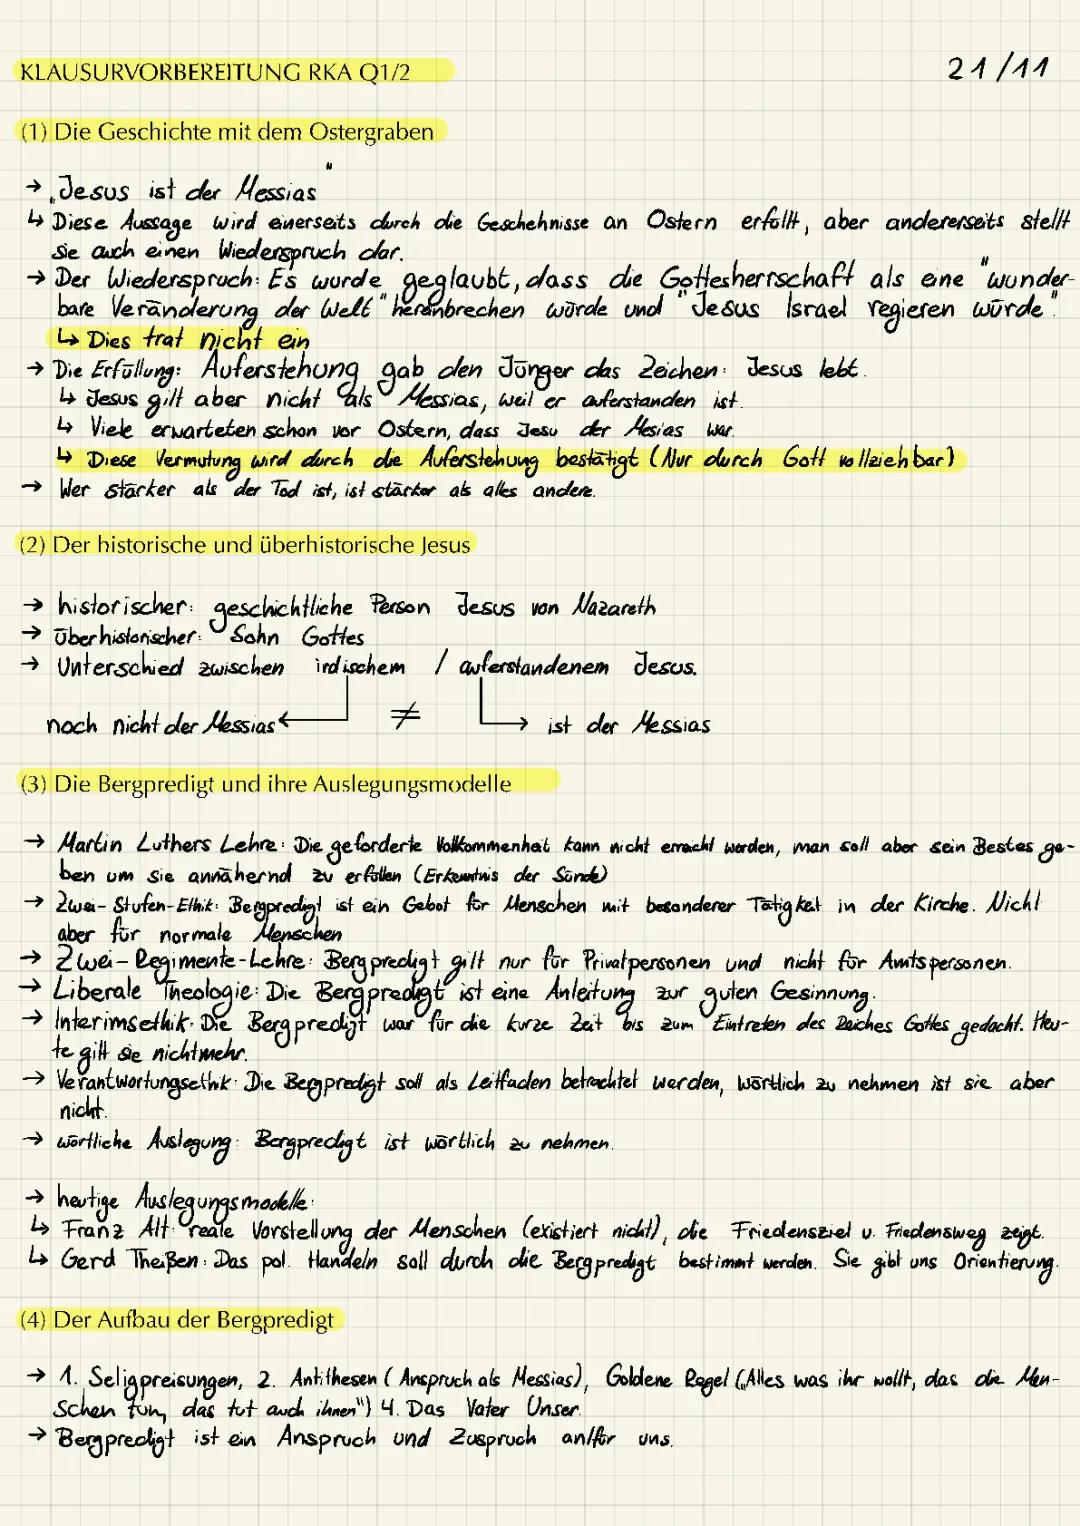 KLAUSURVORBEREITUNG RKA Q1/2
21/11
(1) Die Geschichte mit dem Ostergraben
→ „Jesus ist der Messias"
↳ Diese Aussage wird einerseits durch die Geschehnisse an Ostern erfüllt, aber andererseits stellt
sie auch einen Wiederspruch dar.
→ Der Wiederspruch: Es wurde geglaubt, dass die Gottesherrschaft als eine "wunder-
bare Veränderung der Welt" hereinbrechen würde und "Jesus Israel regieren würde".
↳ Dies trat nicht ein
→ Die Erfüllung: Auferstehung gab den Jünger das Zeichen: Jesus lebt.
↳ Jesus gilt aber nicht als Messias, weil er auferstanden ist.
↳ Viele erwarteten schon vor Ostern, dass Jesu der Mesias war.
↳ Diese Vermutung wird durch die Auferstehung bestätigt (Nur durch Gott vollziehbar)
→ Wer stärker als der Tod ist, ist stärker als alles andere.
(2) Der historische und überhistorische Jesus
→ historischer: geschichtliche Person Jesus von Nazareth
→ überhistorischer: Sohn Gottes
→ Unterschied zwischen irdischem / auferstandenem Jesus.
noch nicht der Messias ← ≠ → ist der Messias
(3) Die Bergpredigt und ihre Auslegungsmodelle
→ Martin Luthers Lehre: Die geforderte Vollkommenheit kann nicht erreicht werden, man soll aber sein Bestes ge-
ben um sie annähernd zu erfüllen (Erkenntnis der Sünde)
→ Zwei-Stufen-Ethik: Bergpredigt ist ein Gebot für Menschen mit besonderer Tätigkeit in der Kirche. Nicht
aber für normale Menschen
→ Zwei-Regimente-Lehre: Bergpredigt gilt nur für Privatpersonen und nicht für Amtspersonen.
→ Liberale Theologie: Die Bergpredigt ist eine Anleitung zur guten Gesinnung.
→ Interimsethik: Die Bergpredigt war für die kurze Zeit bis zum Eintreten des Reiches Gottes gedacht. Heu-
te gilt sie nicht mehr.
→ Verantwortungsethik: Die Bergpredigt soll als Leitfaden betrachtet werden, wörtlich zu nehmen ist sie aber
nicht.
→ wörtliche Auslegung: Bergpredigt ist wörtlich zu nehmen.
→ heutige Auslegungsmodelle:
↳ Franz Alt: reale Vorstellung der Menschen (existiert nicht!), die Friedensziel u. Friedensweg zeigt.
↳ Gerd Theißen: Das pol. Handeln soll durch die Bergpredigt bestimmt werden. Sie gibt uns Orientierung.
(4) Der Aufbau der Bergpredigt
→ 1. Seligpreisungen, 2. Antithesen (Anspruch als Messias), Goldene Regel („Alles was ihr wollt, das die Men-
schen tun, das tut auch ihnen") 4. Das Vater Unser.
→ Bergpredigt ist ein Anspruch und Zuspruch an/für uns.